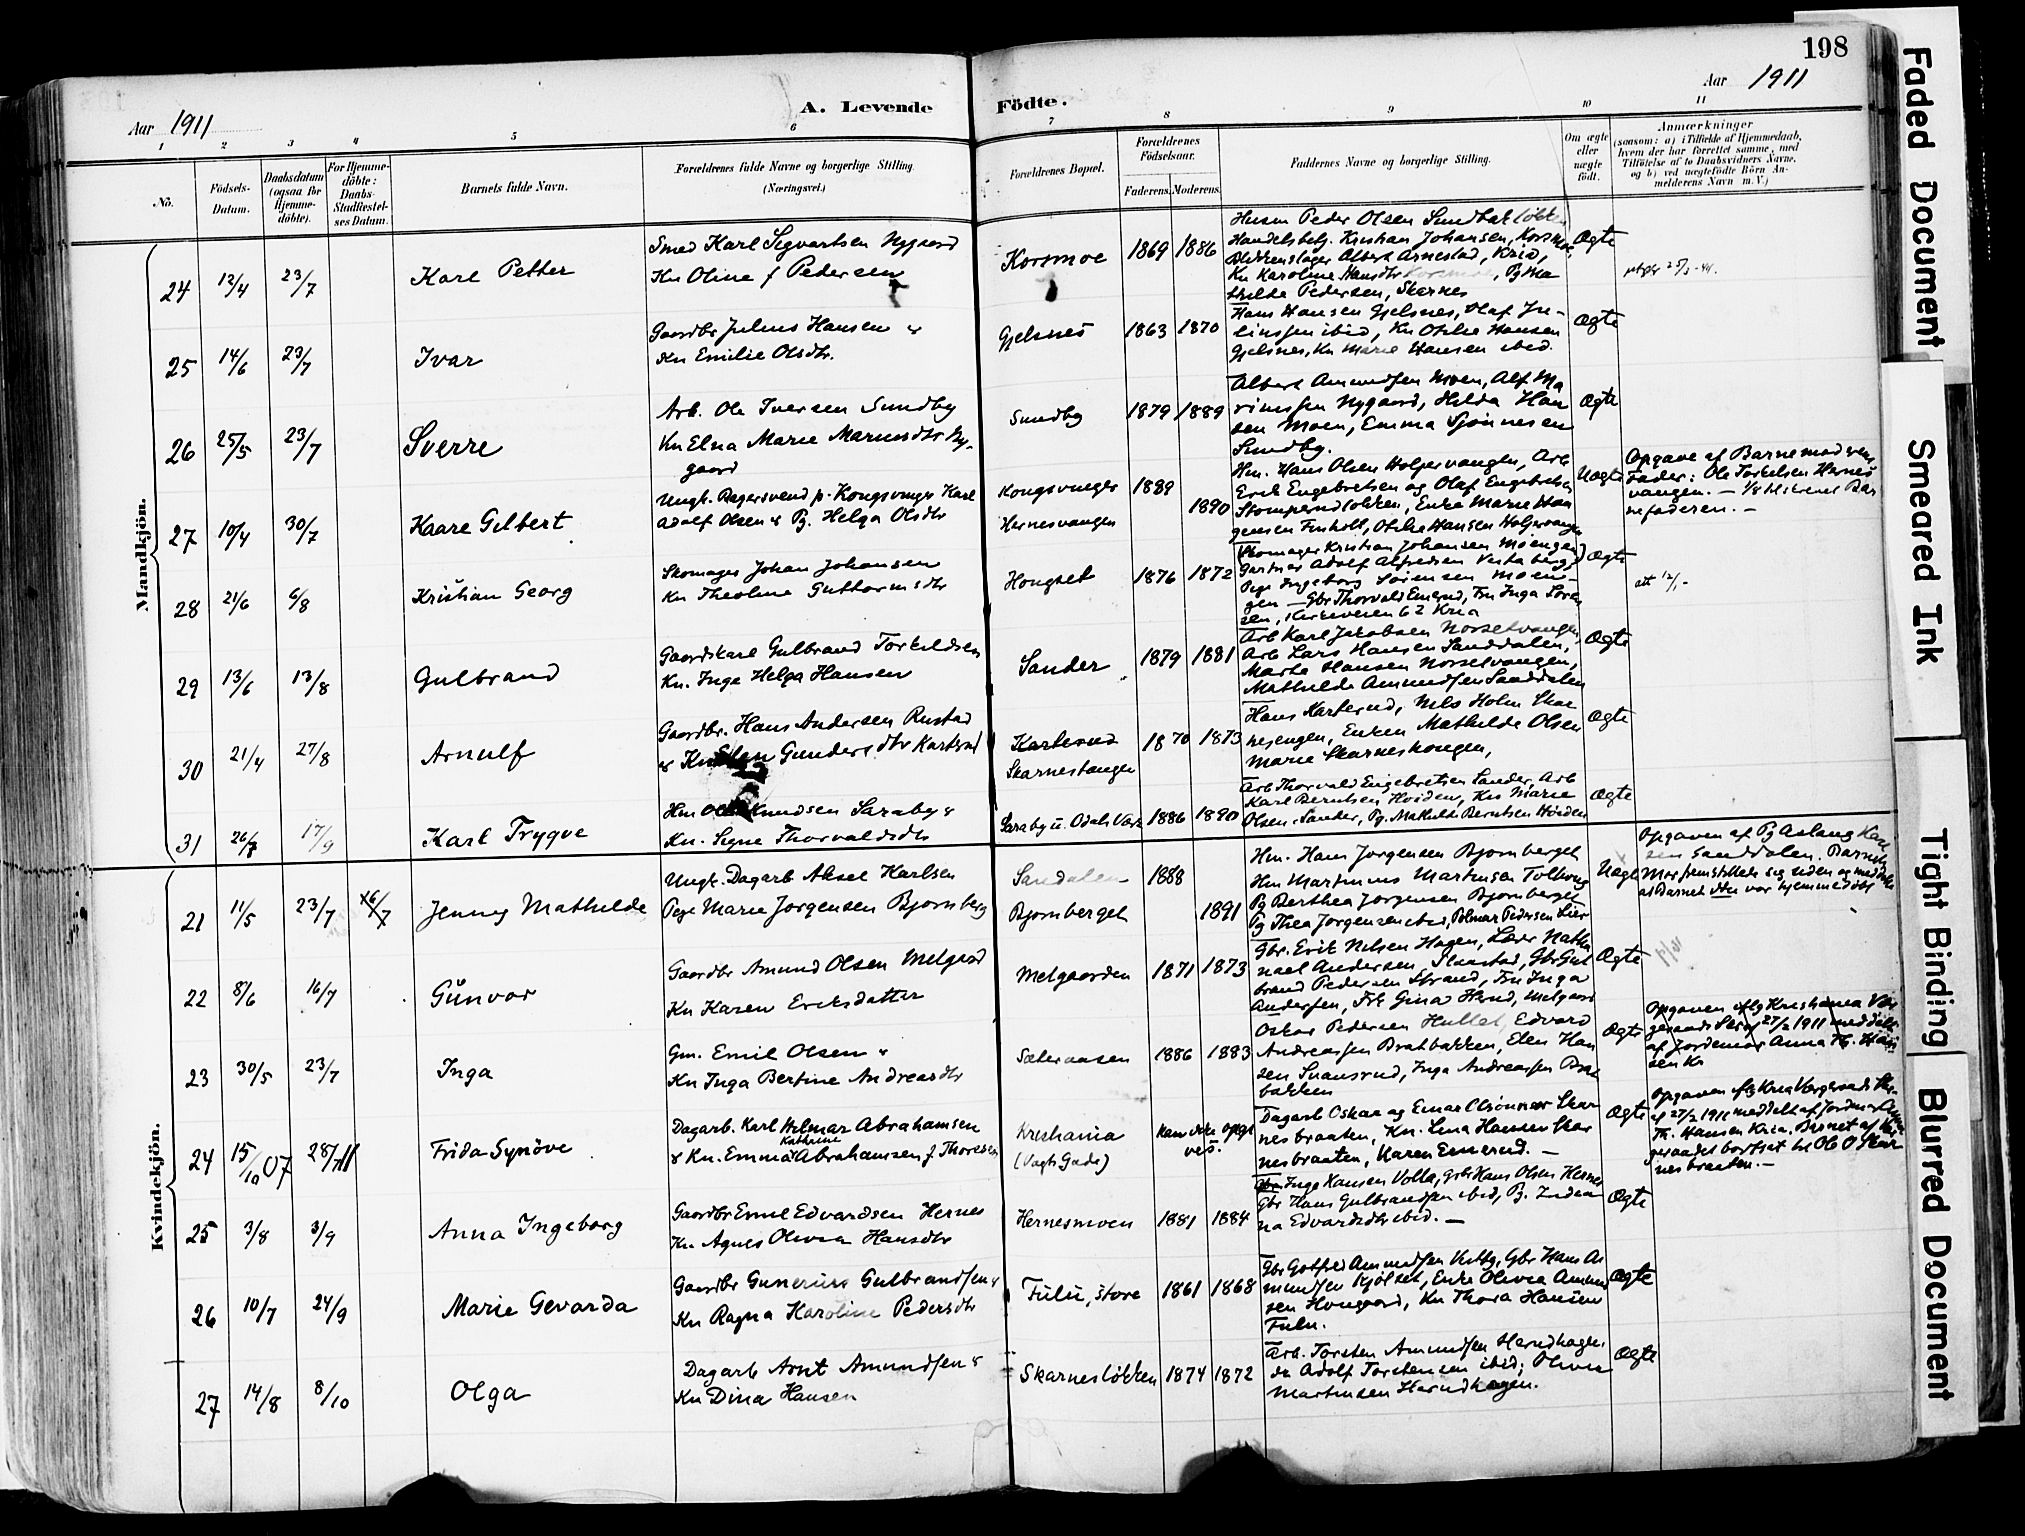 198
Aar 1911
A. Levende Födte.
Aar 1911
1 2 3 4 5 6 7 8 9 10 11
No.
Födsels-Datum.
Daabsdatum (ogsaa for Hjemme-döbte).
For Hjemme-döbte: Daabs-Stadfæstel-ses Datum.
Barnets fulde Navn.
Forældrenes fulde Navne og borgerlige Stilling.
(Næringsvei.)
Forældrenes Bopæl.
Forældrenes Födselsaar.
Faderens. Moderens.
Faddernes Navne og borgerlige Stilling.
Om ægte eller uægte födt.
Anmærkninger
(saasom: a) i Tilfælde af Hjemmedaab,
hvem der har forrettet samme, med
Tilföielse af to Daabsvidners Navne,
og b) ved uægtefödte Börn An-
melderens Navn m. V.)
Mandkjön.
24 12/4 23/7 Karl Petter
Smed Karl Sigvartsen Nygaard
Kn Oline f Pedersen
Korsmoe 1869 1886
Husm Peder Olsen Sundbakløkke
Handelsbetj. Kristian Johansen, Korsmoe,
Blikkenslager Albert Arnestad, Kria,
Kn Karoline Hansdtr Korsmoe, Pg Ma
thilde Pedersen, Skarnes
Ægte
25 14/6 23/7 Ivar
Gaardbr Julius Hansen &
Kn Emilie Olsdtr.
Gjelsnes 1863 1870
Hans Hansen Gjelsnes, Olaf Ju-
liussen ibid, Kn Othilie Hansen
Gjelsnes, Kn Marie Hansen ibid.
Ægte
26 25/5 23/7 Sverre
Arb. Ole Iversen Sundby
Kn Elna Marie Mariusdtr Ny-
gaard
Sundby 1879 1889
Albert Amundsen Moen, Alf Ma
riussen Nygaard, Hilda Han
sen Moen, Emma Sjønnesen
Sundby.
Ægte
27 10/4 30/7 Kaare Gilbert
Ungk. Bagersvend p. Kongsvinger Karl
Adolf Olsen & Pg. Helga Olsdtr
Kongsvinger 1889
Hernesvangen 1890
Hm. Hans Olsen Holjervangen, Arb
Erik Engebretsen og Olaf Engebretsen
Stomperudløkken, Enke Marie Haa
gensen Finholt, Othilie Hansen Holjervangen
Uægte
Opgave af Barnemoderens
Fader: Ole Torkelsen Hernes
vangen. — Barnefaderen. —
28 21/6 6/8 Kristian Georg
Skomager Johan Johansen
Kn Theoline Guttormsdtr
Hongset 1876 1872
Skomager Kristian Johansen Moengen
Gartner Adolf Alfredsen Vestaberg
Pige Ingeborg Sørensen Moen-
gen — Gbr Thorvald Emerud, Fru Inga Soren
sen, Kirkeveien 62 Kria
Ægte
att 12/1-
29 13/6 13/8 Gulbrand
Gaardskarl Gulbrand Torkildsen
Kn. Inge Helga Hansen
Sander 1879 1881
Arb Karl Jakobsen Norsetvangen,
Arb Lars Hansen Sanddalen,
Marthe Hansen Norsetvangen,
Mathilde Amundsen Sanddalen
Ægte
30 21/4 27/8 Arnulf
Gaardbr. Hans Andersen Rustad
& Kn Gundersdtr Karterud
Karterud
Skarnestangen
1870 1873
Hans Karterud, Nils Holm Skar
nesengen, Enken Mathilde Olsen
Marie Skarneshougen,
Ægte
31 26/7 17/9 Karl Trygve
Hm Ole Knudsen Saraby &
Kn. Signe Thorvaldsdtr
Saraby i Odals Værk 1886 1890
Arb Thorvald Engebretsen Sander, Arb
Karl Berntsen Hviden, Kn Marie
Olsen Sander, Pg. Mathilde Berntsen Hviden
Ægte
Kvindekjön.
21 11/5 23/7 16/7 Jenny Mathilde
Ungk. Dagarb Aksel Karlsen
Pige Marie Jorgensen Bjornberg
Sandalen 1888
Bjornberget 1891
Hm. Hans Jorgensen Bjornberget
Hm Martinius Martinsen Tolberg
Pg Berthea Jorgensen Bjornberget
Pg Thea Jorgensen ibid, Polmar Pedersen Lier
Uægte
Opgaven af Pg Aslaug Karl
sen Sanddalen. Barnets
Mor fremstillede sig siden og meddelte
at Barnet ikke var hjemmedøbt
22 8/6 16/7 Gunvor
Gaardbr Amund Olsen Melgard
Kn Karen Eriksdatter
Melgaarden 1871 1873
Gbr. Erik Nilsen Hagen, Lærer Natha
nael Andersen Slaastad, Gbr Gul
brand Pedersen Strand, Fru Inga
Andersen, Frk Gina Strand, Melgard
Ægte
23 30/5 23/7 Inga
Gm. Emil Olsen &
Kn Inga Bertine Andreasdtr
Sæteraasen 1886 1883
Oskar Pedersen Hullet, Edvard
Andreassen Bratbakken, Elen Han
sen Svansrud, Inga Andreassen Brat
bakken
Ægte
Opgaven iflg Kristiania Vær
geraads Skr af 27/2 1911 meddelt
af Jordemor Anna Th. Han
sen Kr
24 15/10 07 28/7 11 Frida Synøve
Dagarb. Karl Hilmar Abrahamsen
& Kn. Emma Kathrine Abrahamsen f. Thoresen
Kristiania
(Vagts Gade)
Kan ikke opgi
ves.
Dagarb Oskar og Einar Olsønner Skar
nesbraaten, Kn. Lina Hansen Skar
nesbraaten, Karen Emerud. —
Ægte
Opgaven iflg Kria Værgeraads Skr.
af 27/2 1911 meddelt af Jordmor Anna
Th. Hansen Kria. Barnet af Vær
geraadet bortsat til Ole O Skar
nesbraaten. —
25 3/8 3/9 Anna Ingeborg
Gaardbr Emil Edvardsen Hernes
Kn. Agnes Olivia Hansdtr
Hernesmoen 1881 1884
Inga Hansen Volla, Gbr Hans Olsen Hernes
Gbr Hans Gulbrandsen ibid, Pg. Indea
na Edvardsdtr ibid. —
Ægte
26 10/7 24/9 Marie Gevarda
Gaardbr Gunerius Gulbrandsen &
Kn Ragna Karoline Pedersdtr
Fulu, store 1861 1868
Gbr Gotfred Amundsen Viltby, Gbr Hans A
mundsen Kjølset, Enke Olivia Amund
sen Hougaard, Kn Thora Hansen
Fulu.
Ægte
27 14/8 8/10 Olga
Dagarb Arnt Amundsen &
Kn Dina Hansen
Skarnesløkken 1874 1872
Arb. Torsten Amundsen Herudhagen
Adolf Torstensen ibid; Olivia
Martinsen Herudhagen.
Ægte
Faded Document
Smeared Ink
Tight Binding
Blurred Document